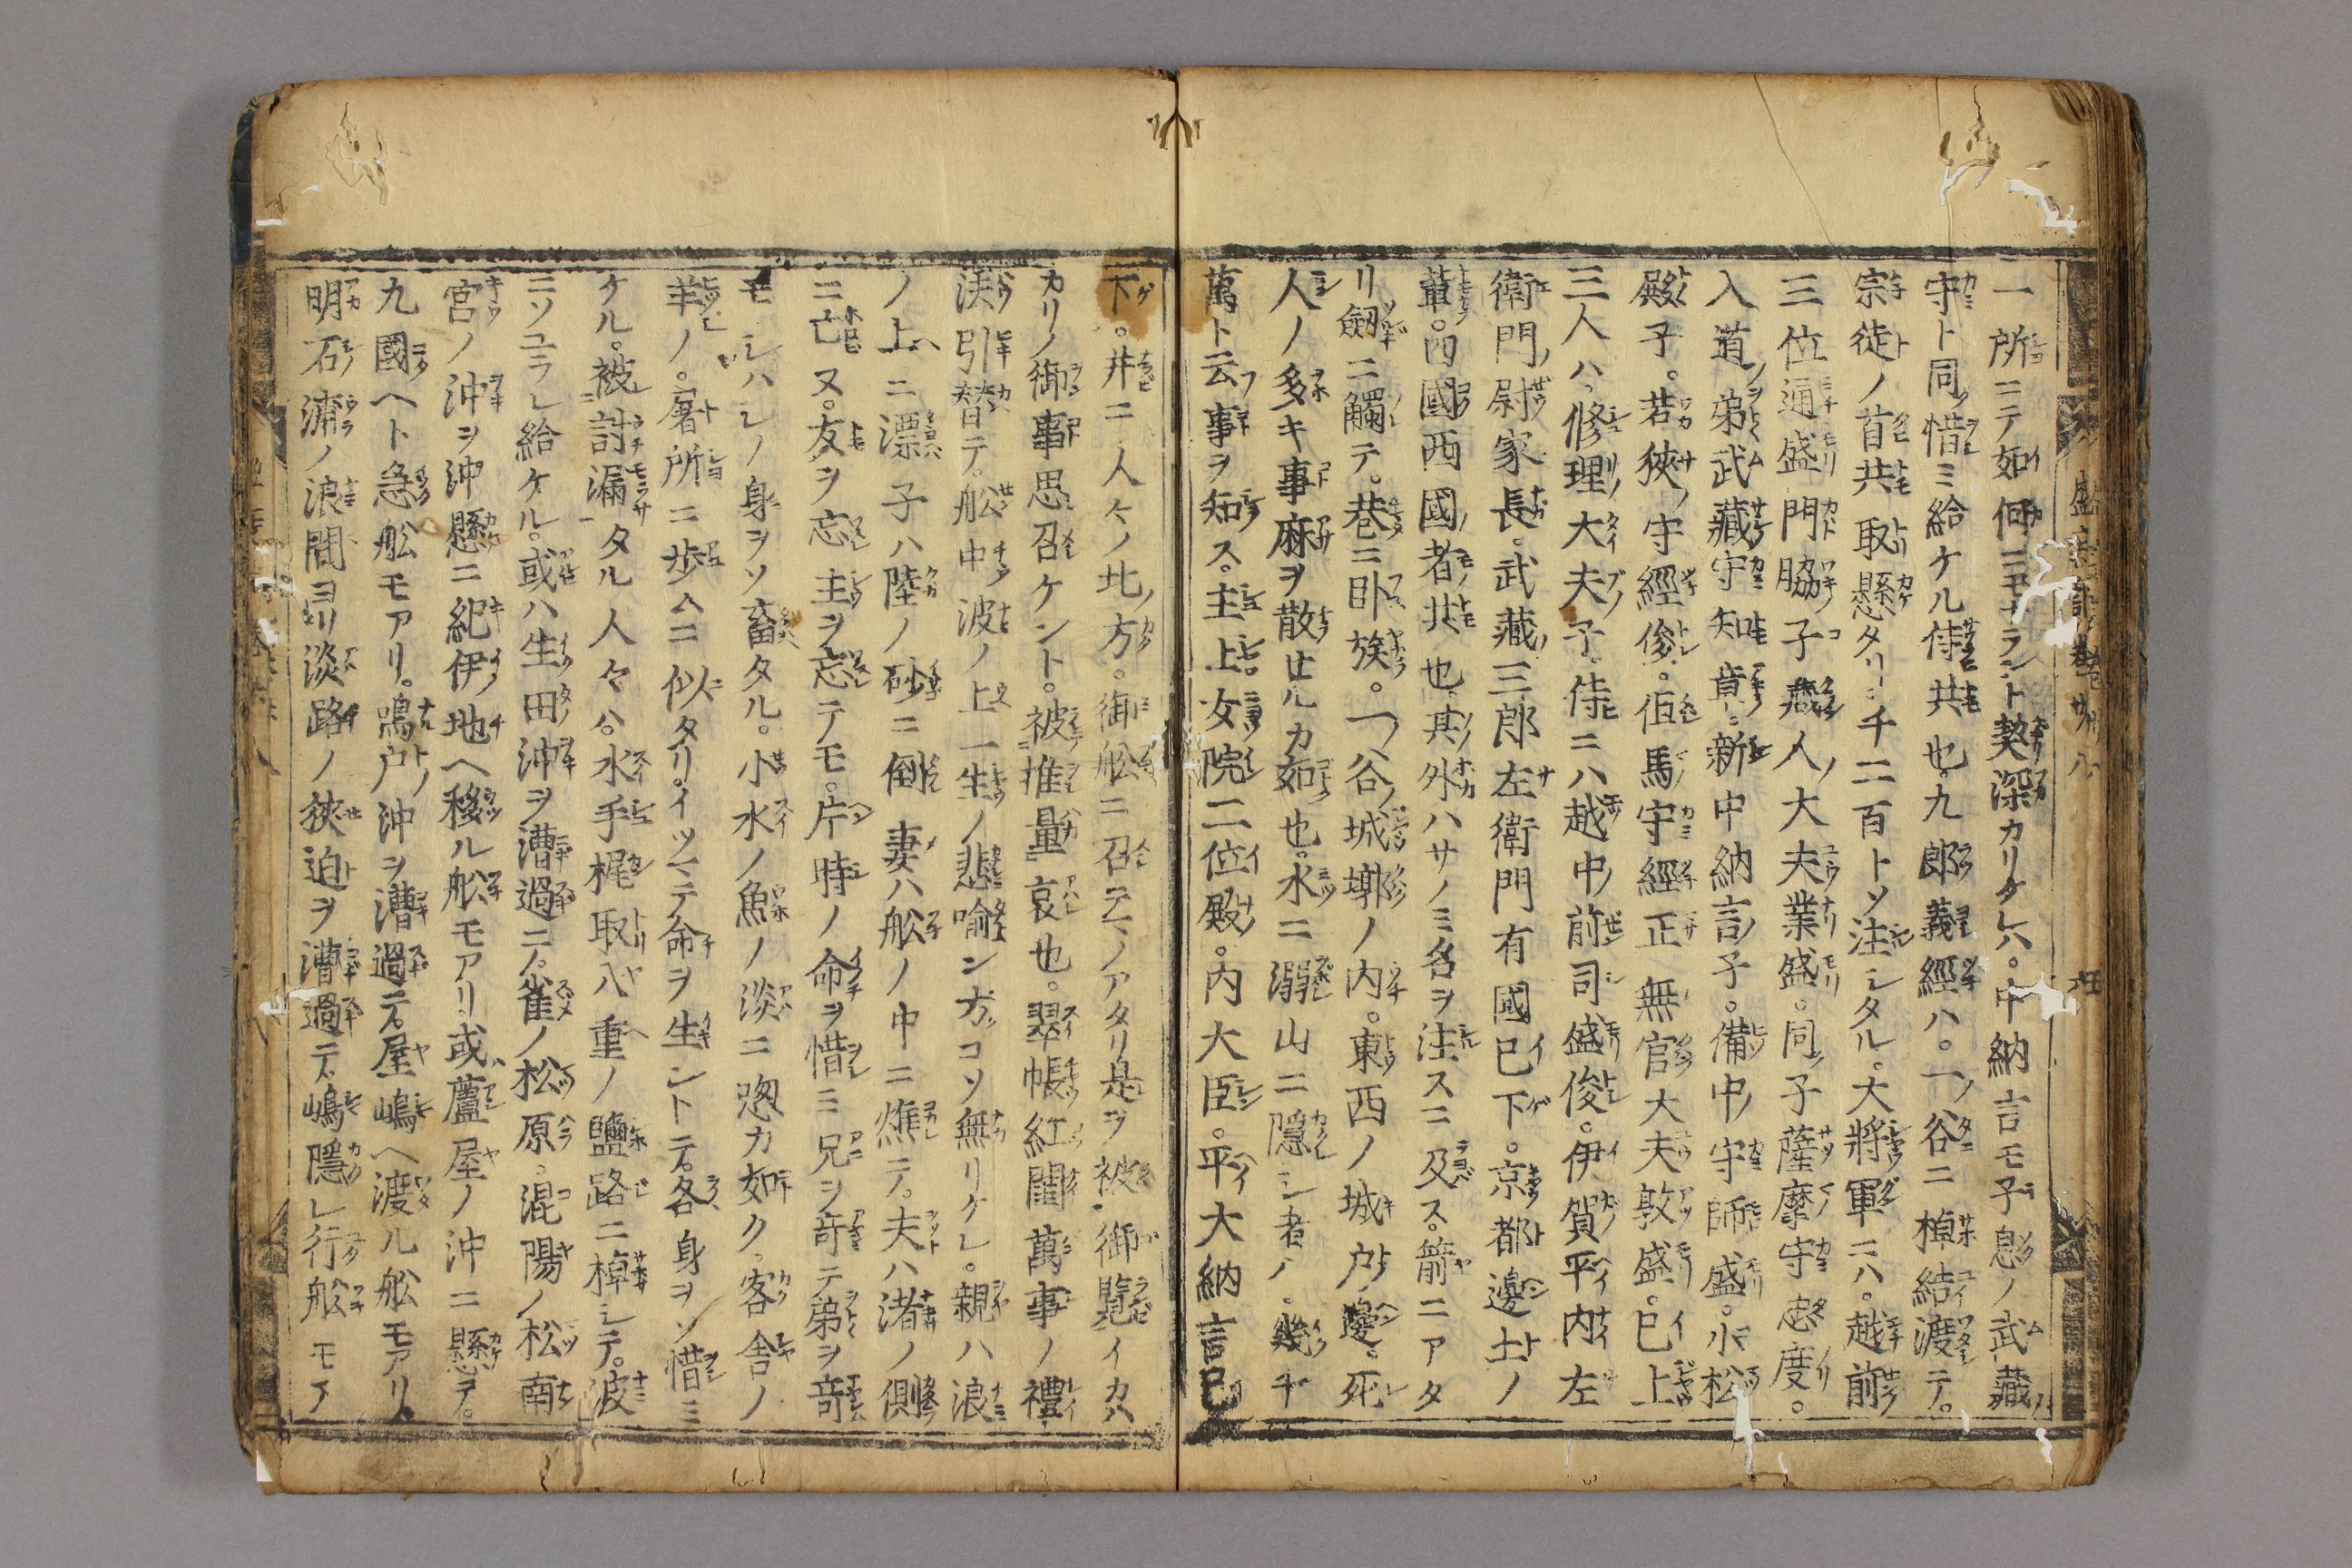 一所ニテ如何ニモナラント契深カリケレハ。中納言モ子息ノ武藏
守ト同惜ミ給ケル侍共也。九郎義經ハ。一谷ニ棹結渡テ。
宗徒ノ首共取懸タリ。千二百トソ注シタル。大將軍ニハ。越前
三位通盛門脇子藏人大夫業盛。同子薩摩守忠度。
入道弟武藏守知章。新中納言子。備中守師盛。小松
殿子。若狹守經俊。但馬守經正無官大夫敦盛。已上
三人ハ。修理大夫子。侍ニハ越中前司盛俊。伊賀平内左
衛門尉家長。武藏三郎左衛門有國已下。京都邊土ノ
輩。四國西國者共也。其外ハサノミ名ヲ注スニ及ス。箭ニアタ
リ劔ニ觸テ。巷ニ卧族。一谷城墎ノ内。東西ノ城戸邊。死
人ノ多キ事麻ヲ散セルカ如也。水ニ溺山ニ隱シ者ハ。幾千
萬ト云事ヲ知ス。主上女院二位殿。内大臣。平大納言已
下。井ニ人々ノ北方。御舩ニ召テマノアタリ是ヲ被御覽イカハ
カリノ御事思召ケント。被推量哀也。翠帳紅閨萬事ノ禮
法引替テ。舩中波ノ上一生ノ悲喩ン方コソ無リケレ。親ハ浪
ノ上ニ漂子ハ陸ノ砂ニ倒妻ハ舩ノ中ニ燋テ。夫ハ渚ノ側
ニ亡ヌ。友ヲ忘主ヲ忘テモ。片時ノ命ヲ惜ミ兄ヲ弃テ弟ヲ弃
モシハシノ身ヲソ畜タル。小水ノ魚ノ淡ニ喣カ如ク。客舎ノ
羊ノ。屠所ニ歩ムニ似タリ。イツマテ命ヲ生ントテ。各身ヲソ惜ミ
ケル。被討漏タル人々ハ。水手梶取八重ノ鹽路ニ棹シテ。波
ニソユラレ給ケル。或ハ生田沖ヲ漕過テ。雀ノ松原。混陽ノ松南
宮ノ沖ヲ沖懸ニ紀伊地ヘ移ル舩モアリ。或ハ蘆屋ノ沖ニ懸テ。
九國ヘト急舩モアリ。鳴戸ノ沖ヲ漕過テ。屋嶋ヘ渡ル舩モアリ。
明石浦ノ浪間ヨリ淡路ノ狹迫ヲ漕過テ。嶋隱レ行舩モア